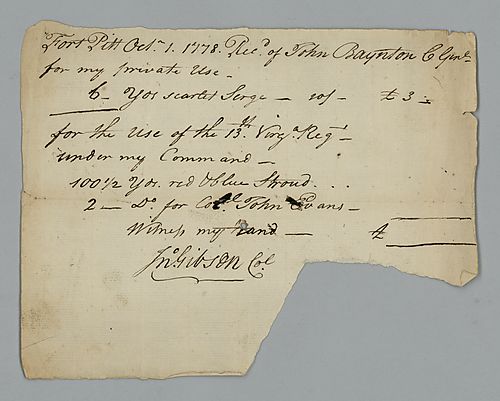 Fort Pitt Octr. 1. 1778. Recd of John Baynton
for my private Use -
6 - Yds scarlet Serge - 10/- £ 3 -
for the Use of the 13th Virga. Regt
under my Command -
100 1/2 Yds. red & blue Stroud . . .
2 - Do for Coll John Evans -
Witness my Hand - £
Jno. Gibson Col.